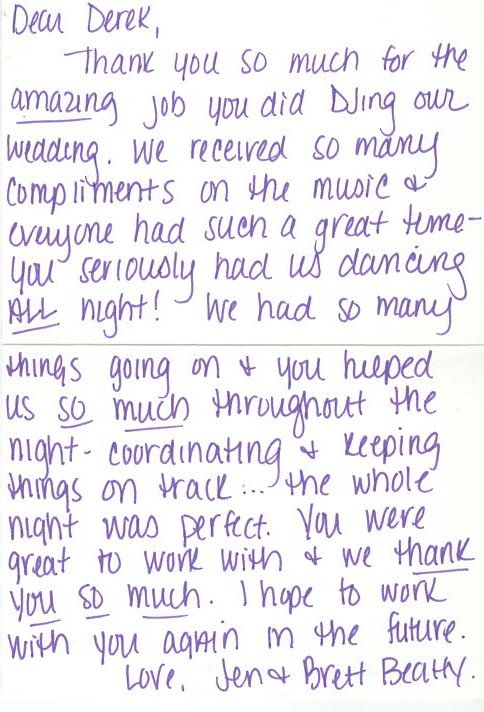 Dear Derek,
Thank you so much for the
amazing job you did DJing our
wedding. We received so many
compliments on the music &
everyone had such a great time-
you seriously had us dancing
ALL night! We had so many
things going on & you helped
us so much throughout the
night- coordinating & keeping
things on track... the whole
night was perfect. You were
great to work with & we thank
you so much. I hope to work
with you again in the future.
Love, Jen & Brett Beatty.